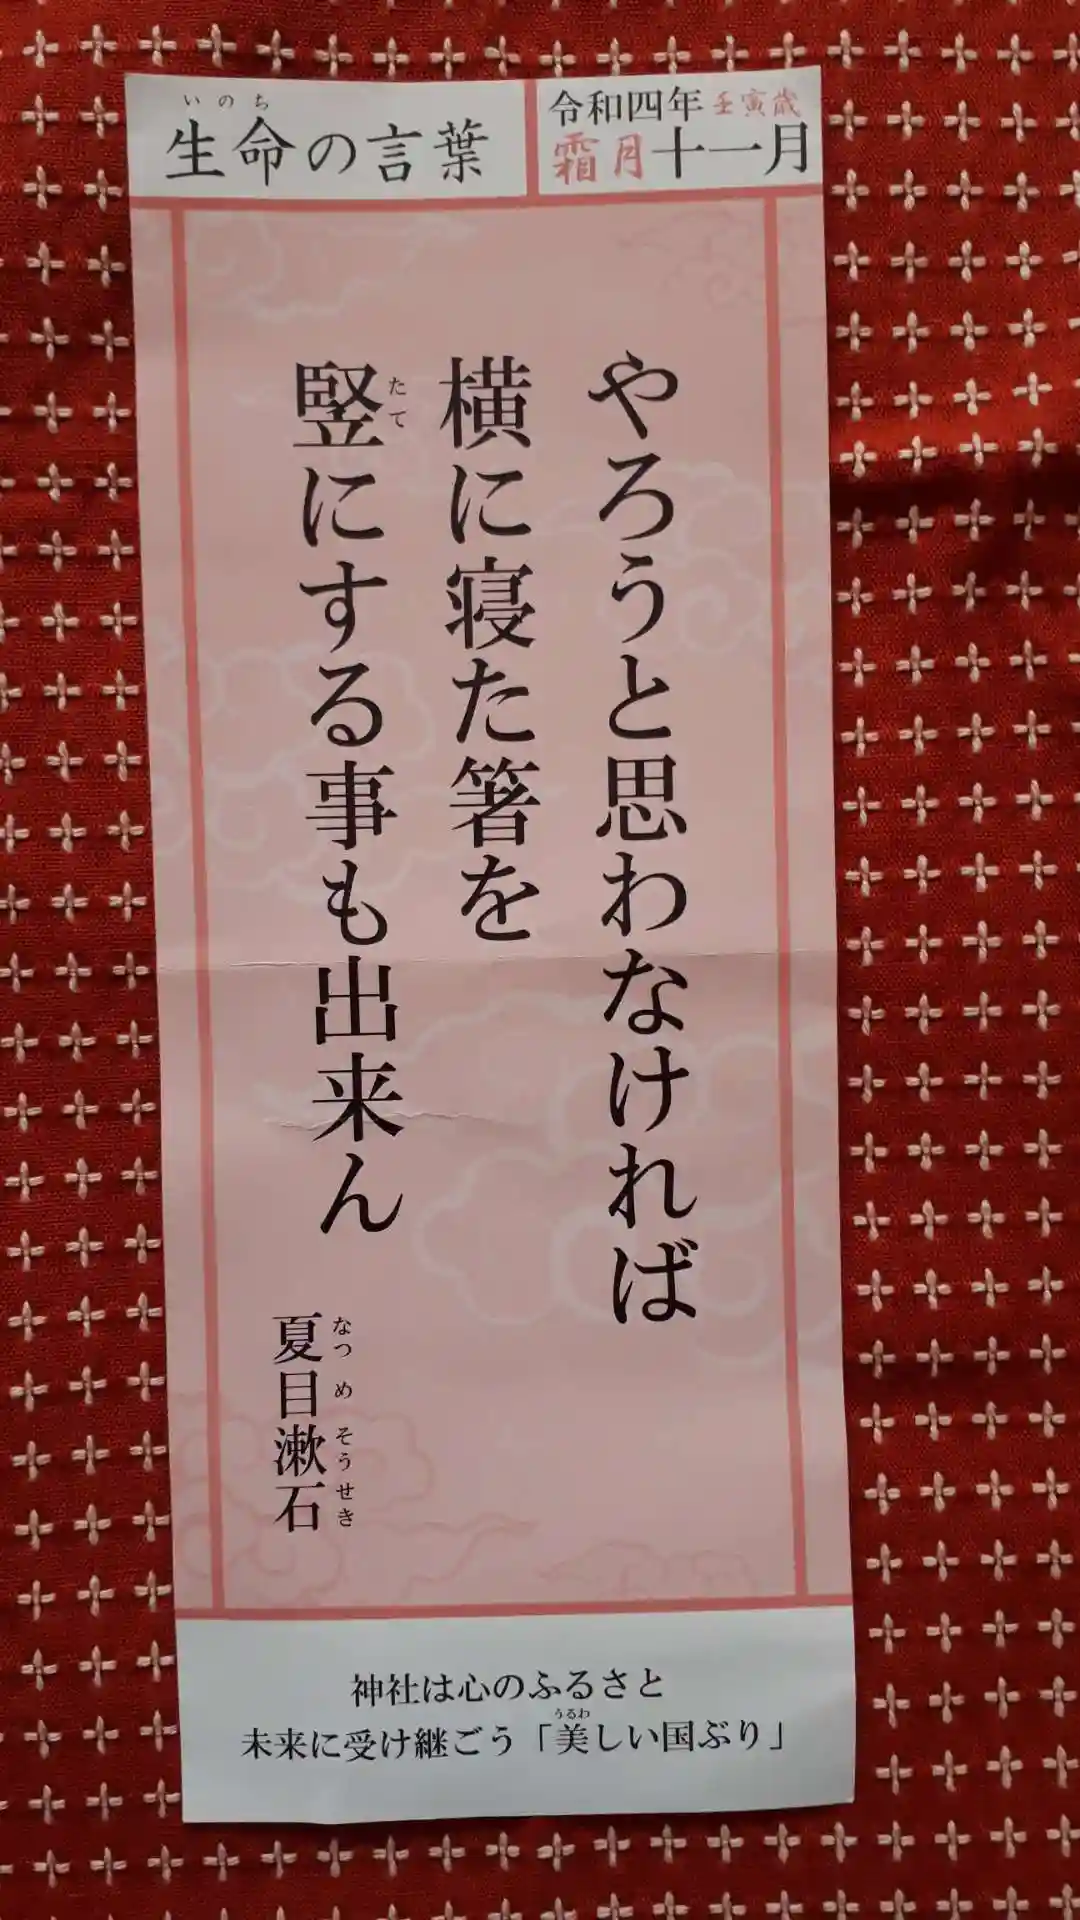 生命の言葉
いのち
令和四年 壬寅歳
霜月十一月
やろうと思わなければ
横に寝た箸を
竪にする事も出来ん
たて
夏目漱石
なつめそうせき
神社は心のふるさと
未来に受け継ごう「美しい国ぶり」
うるわ